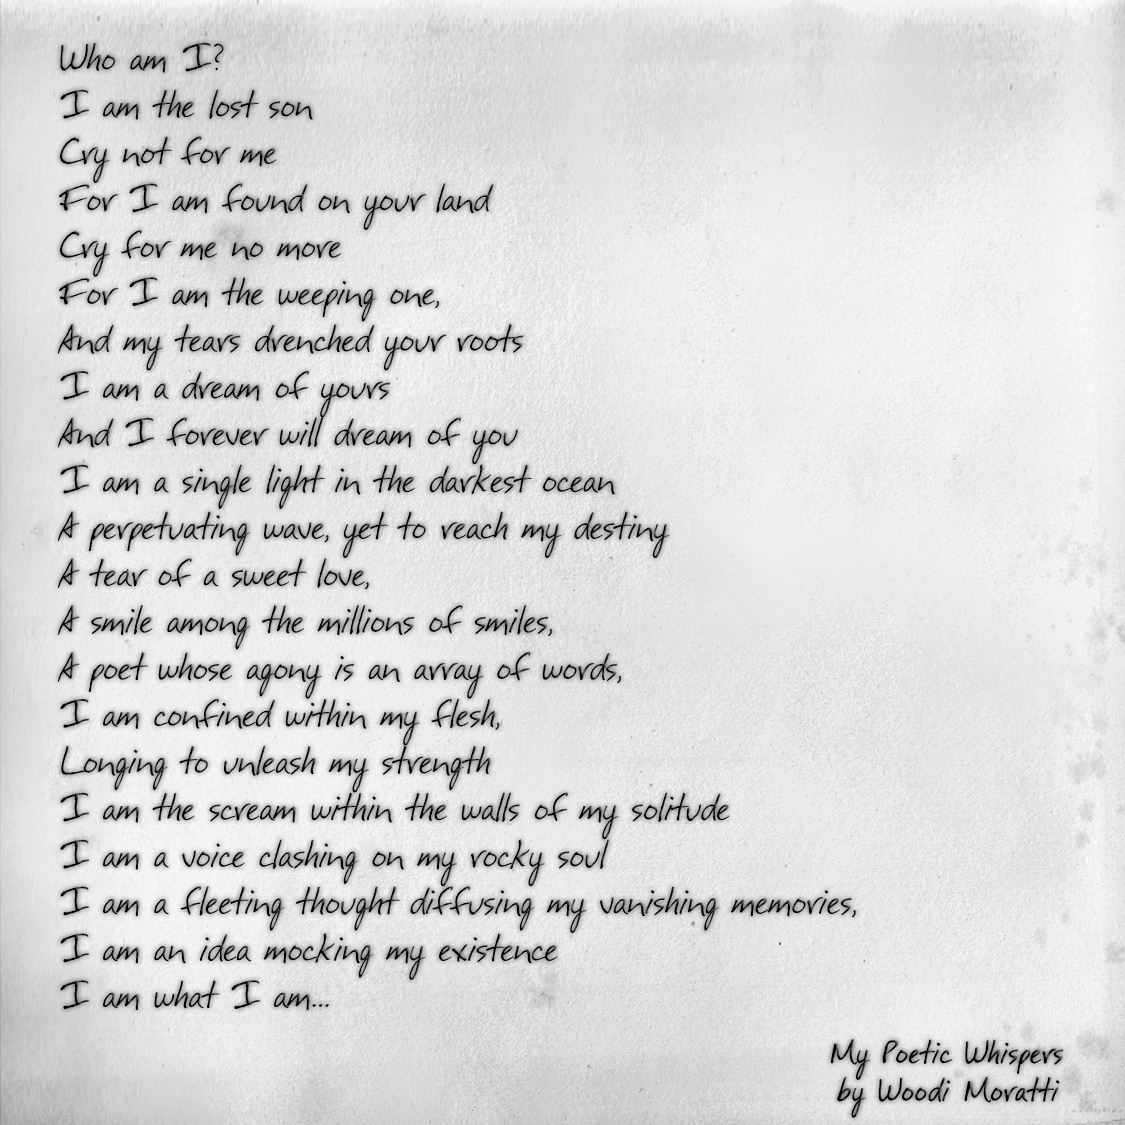 Who am I?
I am the lost son
Cry not for me
For I am found on your land
Cry for me no more
For I am the weeping one,
And my tears drenched your roots
I am a dream of yours
And I forever will dream of you
I am a single light in the darkest ocean
A perpetuating wave, yet to reach my destiny
A tear of a sweet love,
A smile among the millions of smiles,
A poet whose agony is an array of words,
I am confined within my flesh,
Longing to unleash my strength
I am the scream within the walls of my solitude
I am a voice clashing on my rocky soul
I am a fleeting thought diffusing my vanishing memories,
I am an idea mocking my existence
I am what I am...
My Poetic Whispers
by Woodi Moratti